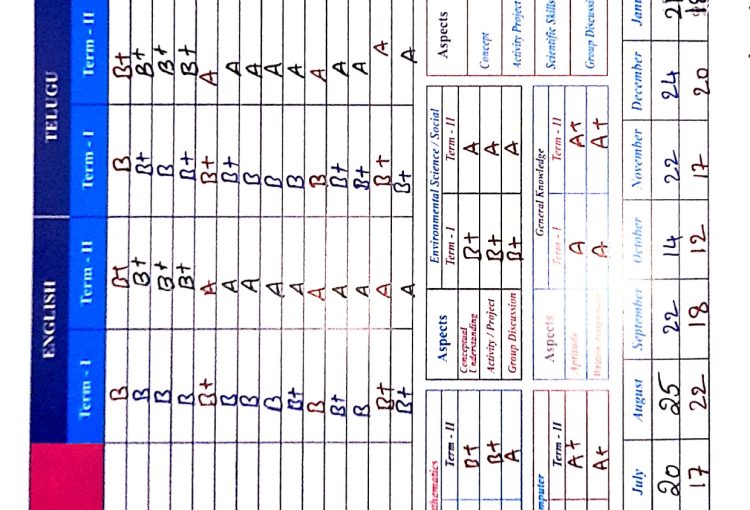 ENGLISH TELUGU
Term - I Term - II Term - I Term - II
B B+ B B+
B B+ B+ B+
B B+ B B+
B B+ B+ B+
B+ A B+ A
B A B+ A
B A B A
B A B A
B+ A B A
B A B A
B+ A B+ A
B A B+ A
B+ A B+ A
B+ A B+ A
Aspects Environmental Science / Social Aspects
Term - II Term - I Term - II
B+ Conceptual Understanding B+ A Concept
B+ Activity / Project B+ A Activity Project
A Group Discussion B+ A
General Knowledge
Term - II Aspects Term - I Term - II Scientific Skills
A+ Aptitude A A+
A+ A A+ Group
July August September October November December
20 25 22 14 22 24
17 22 18 12 17 20